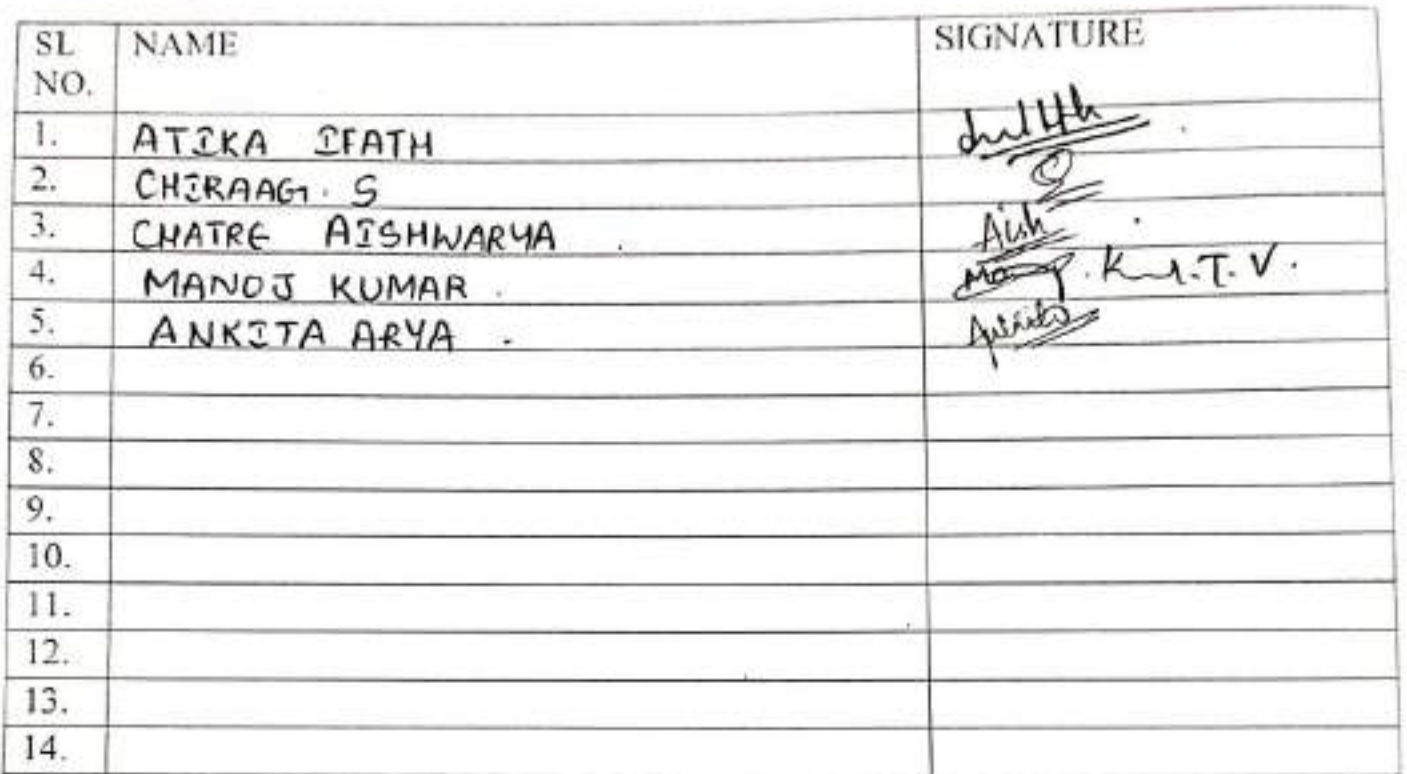 SL NO. NAME SIGNATURE
1. ATIKA IFATH
2. CHIRAAG. S
3. CHATRE AISHWARYA Aish
4. MANOJ KUMAR T. V.
5. ANKITA ARYA Ankita
6.
7.
8.
9.
10.
11.
12.
13.
14.